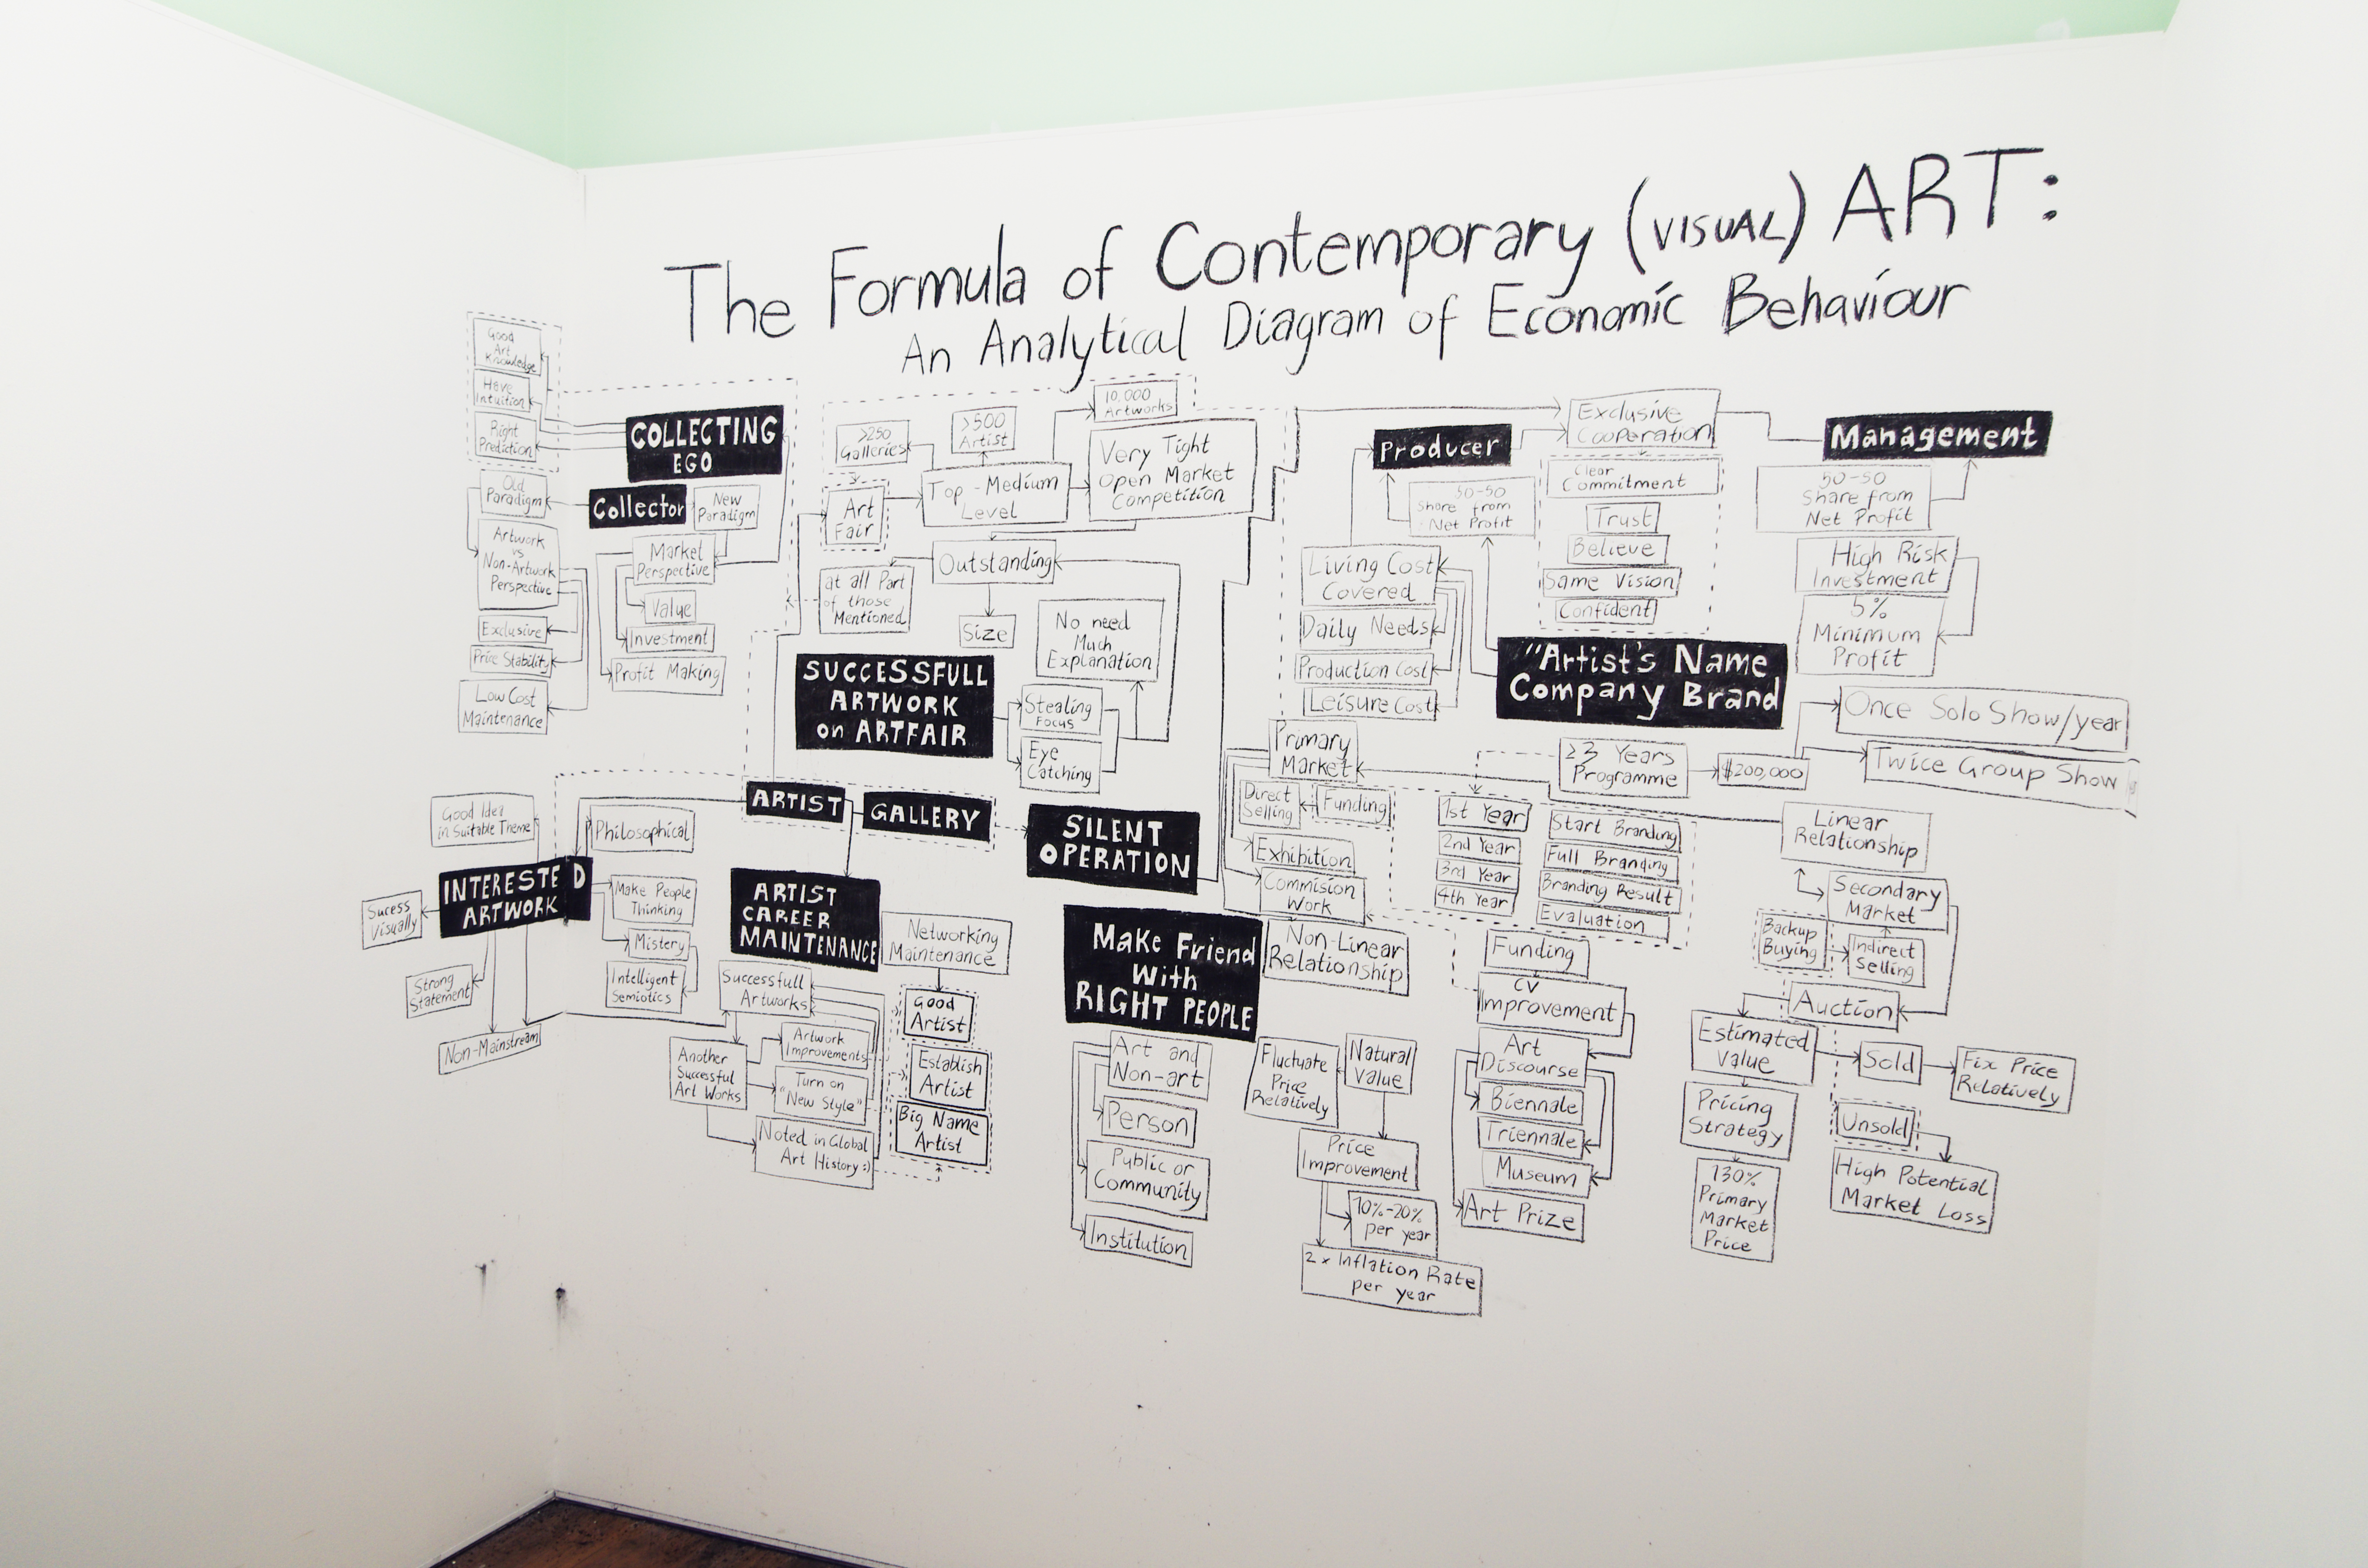 The Formula of Contemporary (VISUAL) ART:
An Analytical Diagram of Economic Behaviour
Good
Art
Knowledge
Have
Intuition
Right
Prediction
COLLECTING
EGO
Old
Paradigm
Collector
New
Paradigm
Artwork
vs
Non-Artwork
Perspective
Market
Perspective
Value
Investment
Profit Making
Exclusive
Price Stability
Low Cost
Maintenance
>250
Galleries
>500
Artist
10,000
Artworks
Art
Fair
Top-Medium
Level
Very Tight
Open Market
Competition
Outstanding
at all Part
of those
Mentioned
Size
No need
Much
Explanation
SUCCESSFULL
ARTWORK
on ARTFAIR
Stealing
FOCUS
Eye
Catching
Producer
Exclusive
Cooperation
Management
50-50
Share from
Net Profit
Clear
Commitment
Trust
Believe
Same Vision
Confident
50-50
Share from
Net Profit
High Risk
Investment
5%
Minimum
Profit
Living Cost
Covered
Daily Needs
Production Cost
Leisure Cost
"Artist's Name
Company Brand
Once Solo Show/year
Twice Group Show
≥3 Years
Programme
$200,000
Primary
Market
Direct
Selling
Funding
Exhibition
Commision
Work
Non-Linear
Relationship
1st Year
2nd Year
3rd Year
4th Year
Start Branding
Full Branding
Branding Result
Evaluation
Linear
Relationship
Secondary
Market
Backup
Buying
Indirect
Selling
Auction
Estimated
Value
Sold
Fix Price
Relatively
Pricing
Strategy
130%
Primary
Market
Price
Unsold
High Potential
Market Loss
Funding
CV
Improvement
Art
Discourse
Biennale
Triennale
Museum
Art Prize
Good Idea
in Suitable Theme
Philosophical
ARTIST
GALLERY
SILENT
OPERATION
INTERESTED
ARTWORK
Sucess
Visually
Strong
Statement
Non-Mainstream
Make People
Thinking
Mistery
Intelligent
Semiotics
ARTIST
CAREER
MAINTENANCE
Networking
Maintenance
Successfull
Artworks
Another
Successful
Art Works
Artwork
Improvements
Turn on
"New Style"
Noted in Global
Art History :)
Good
Artist
Establish
Artist
Big Name
Artist
Make Friend
With
RIGHT PEOPLE
Art and
Non-art
Person
Public or
Community
Institution
Fluctuate
Price
Relatively
Natural
Value
Price
Improvement
10%-20%
per year
2x Inflation Rate
per year